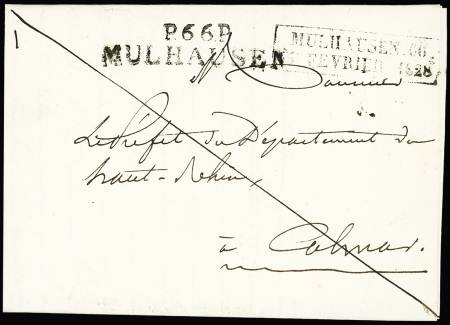 P.66.P.
MULHAUSEN
MULHAUSEN.66
FEVRIER 1828
A Monsieur
Le Préfet du Département du
haut-Rhin,
à Colmar.